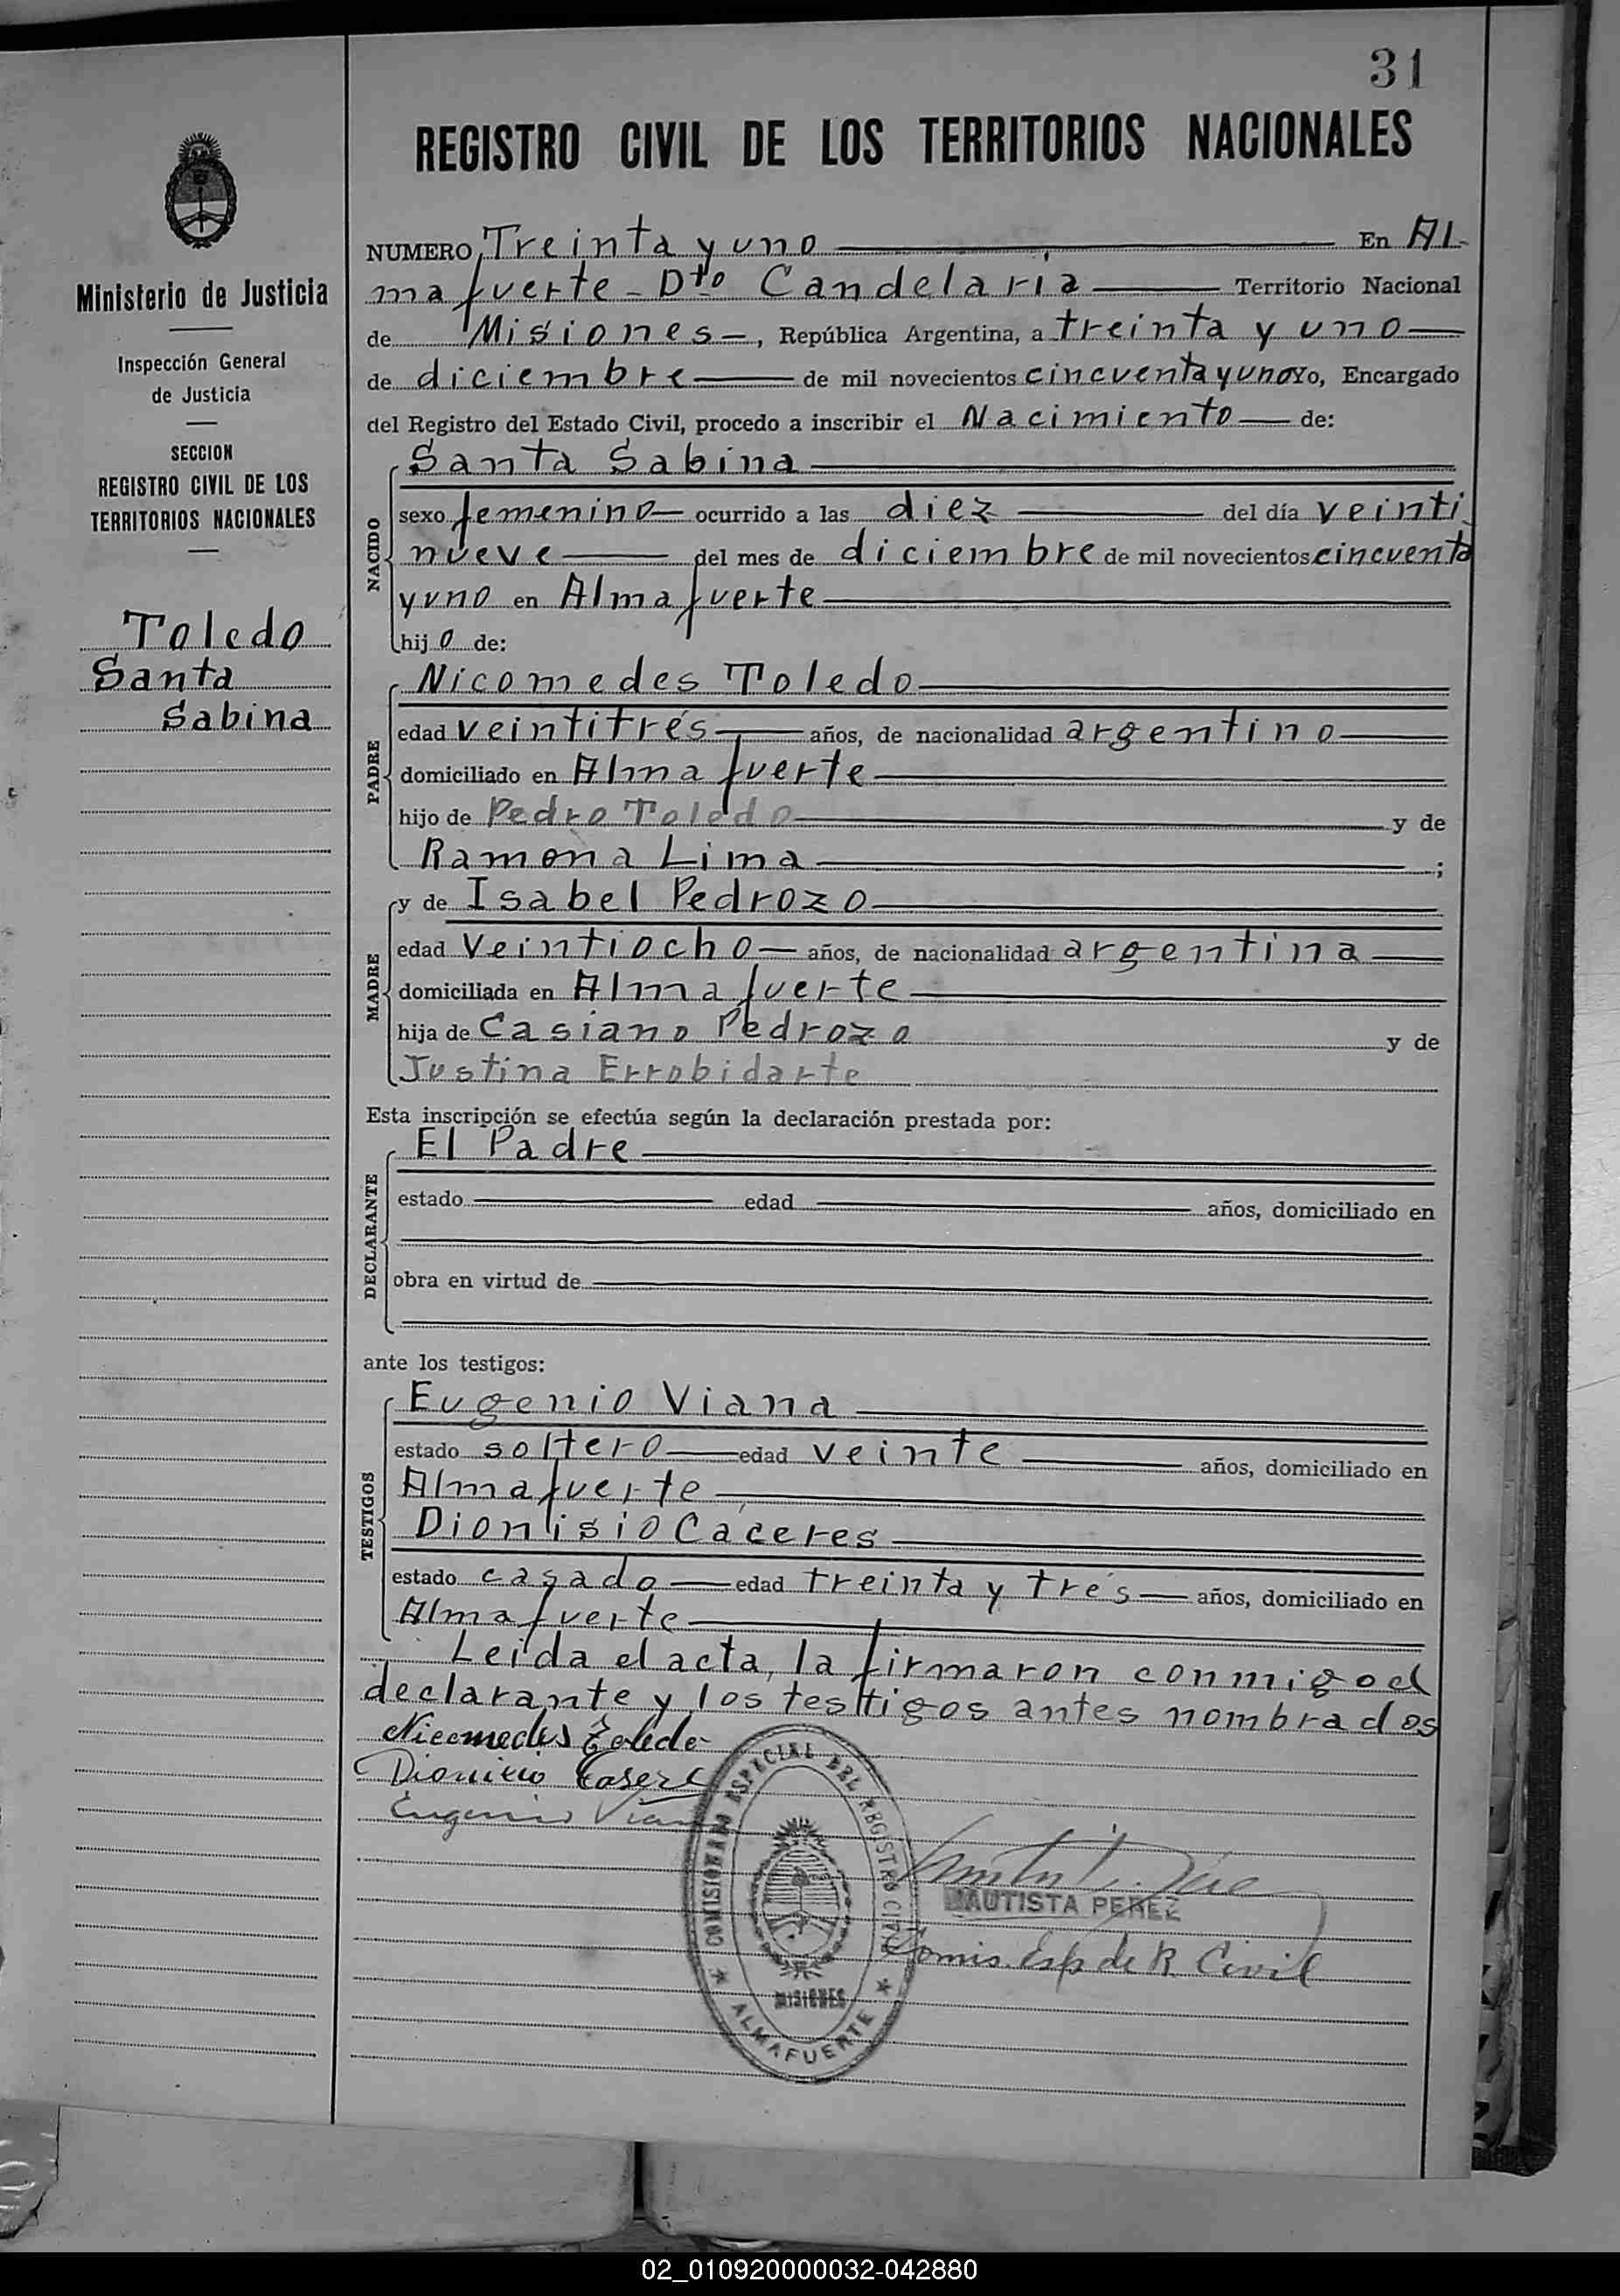 31
REGISTRO CIVIL DE LOS TERRITORIOS NACIONALES
Ministerio de Justicia
Inspección General
de Justicia
SECCION
REGISTRO CIVIL DE LOS
TERRITORIOS NACIONALES
Toledo
Santa
Sabina
NUMERO Treinta y uno En Al-
mafuerte - Dto Candelaria Territorio Nacional
de Misiones -, República Argentina, a treinta y uno
de diciembre de mil novecientos cincuenta y uno Yo, Encargado
del Registro del Estado Civil, procedo a inscribir el Nacimiento de:
NACIDO
Santa Sabina
sexo femenino ocurrido a las diez del día veinti
nueve del mes de diciembre de mil novecientos cincuenta
y uno en Almafuerte
hijo de:
PADRE
Nicomedes Toledo
edad veintitrés años, de nacionalidad argentino
domiciliado en Almafuerte
hijo de Pedro Toledo y de
Ramona Lima ;
MADRE
y de Isabel Pedrozo
edad veintiocho años, de nacionalidad argentina
domiciliada en Almafuerte
hija de Casiano Pedrozo y de
Justina Errobidarte
Esta inscripción se efectúa según la declaración prestada por:
DECLARANTE
El Padre
estado edad años, domiciliado en
obra en virtud de
ante los testigos:
TESTIGOS
Eugenio Viana
estado soltero edad veinte años, domiciliado en
Almafuerte
Dionisio Caceres
estado casado edad treinta y tres años, domiciliado en
Almafuerte
Leida el acta, la firmaron conmigo el
declarante y los testigos antes nombrados
Nicomedes Toledo
Dionicio Casere
Eugenio Viana
COMISIONADO ESPECIAL DEL REGISTRO CIVIL
MISIONES
ALMAFUERTE
BAUTISTA PEREZ
Comis. Esp de R. Civil
02_010920000032-042880